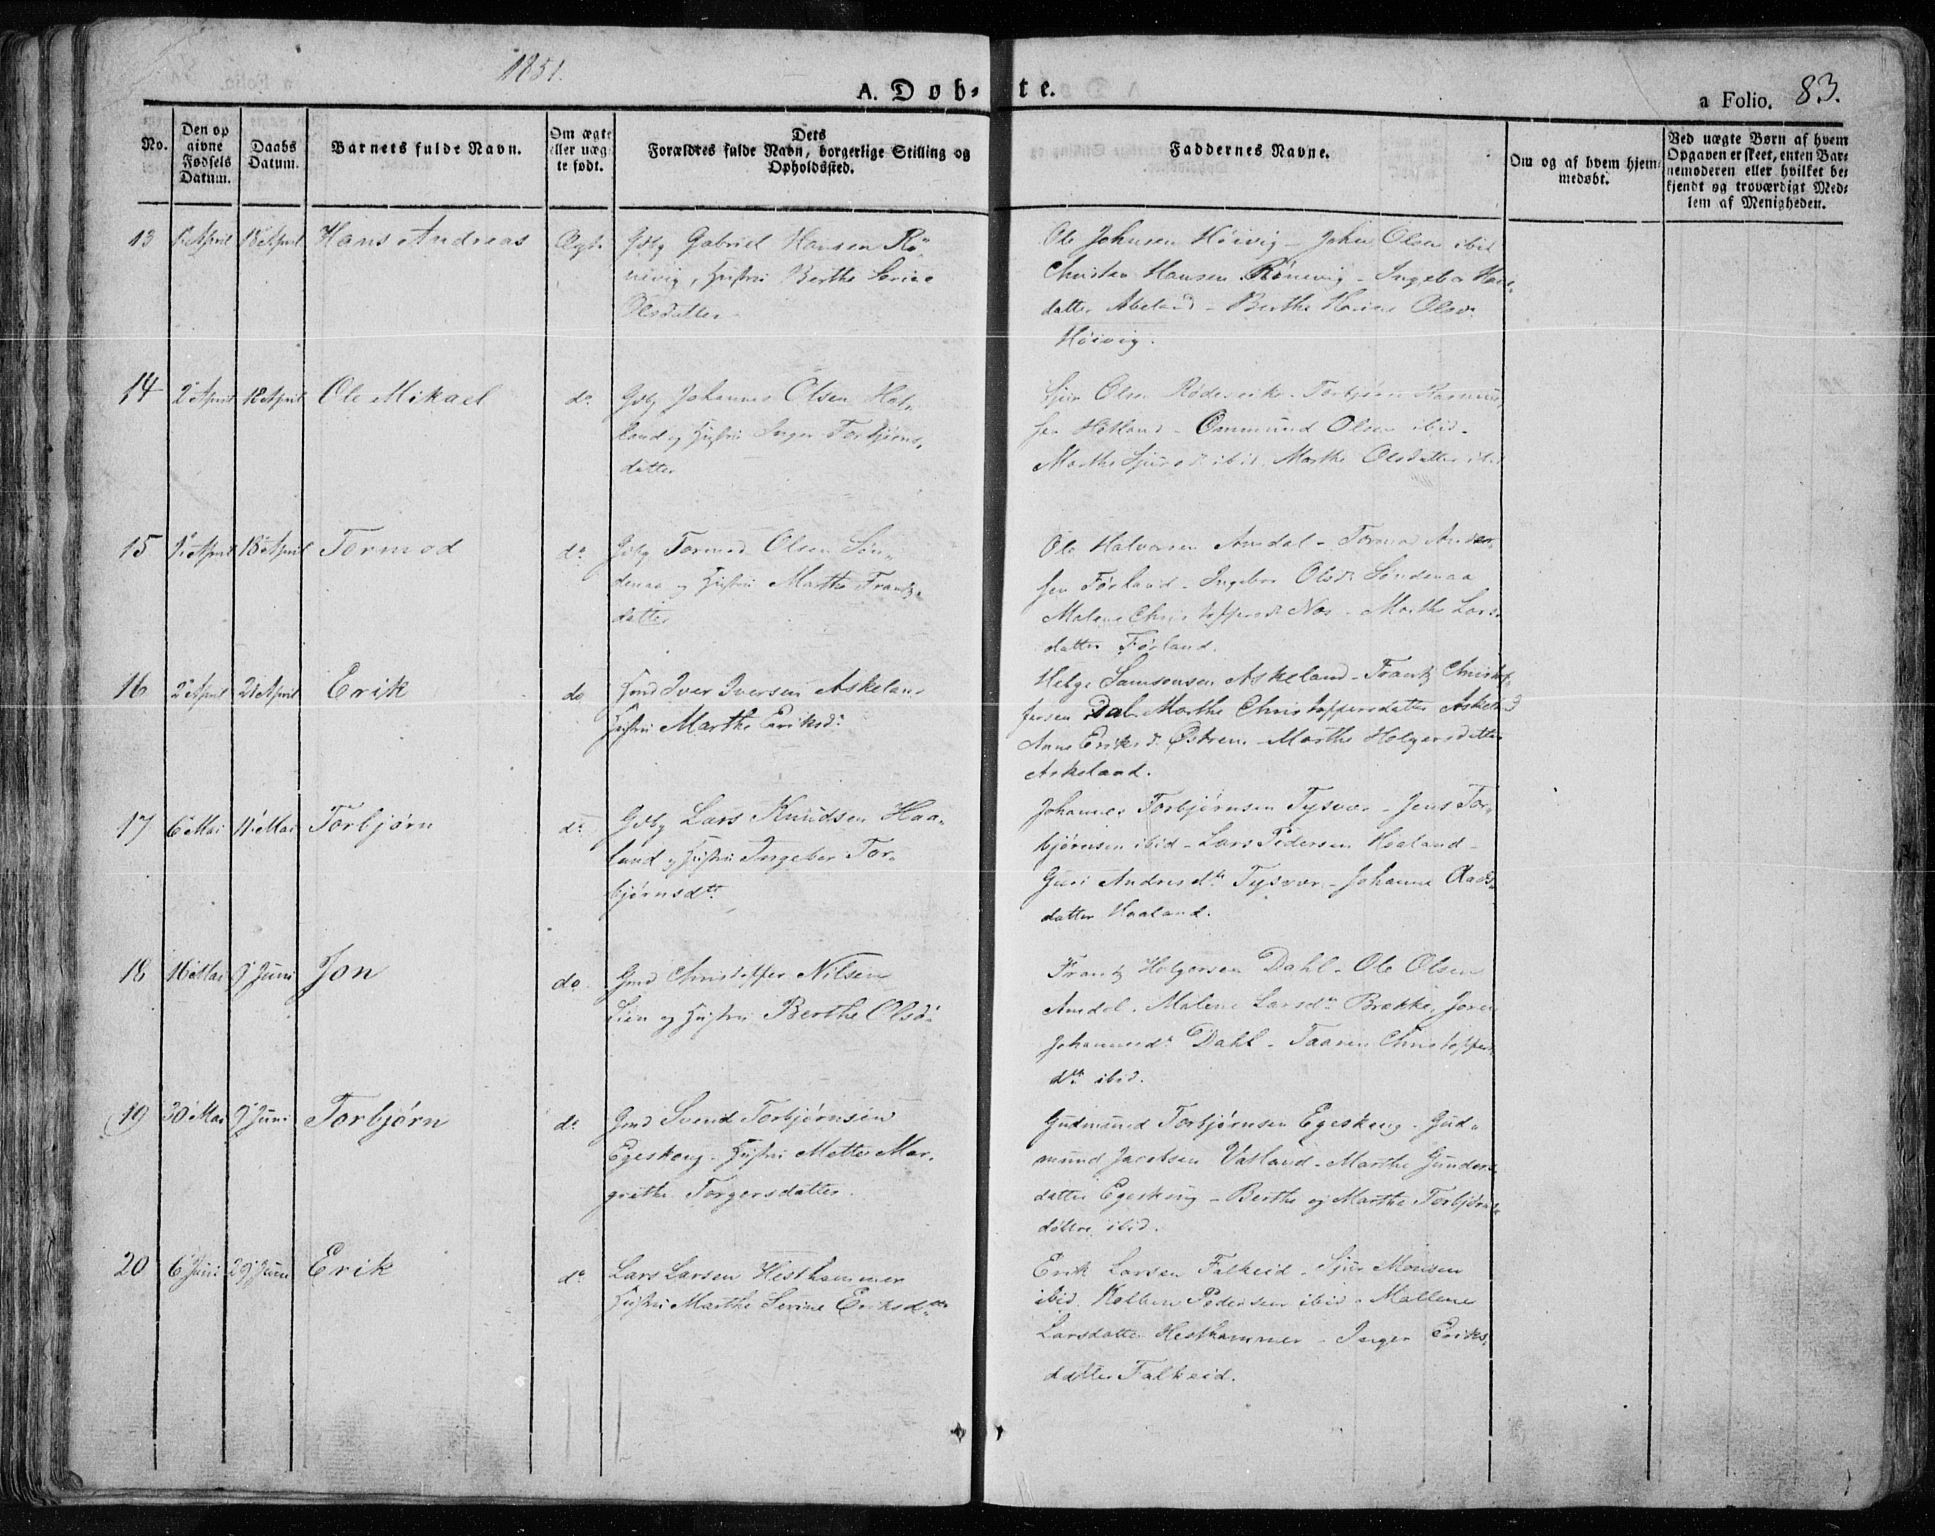 1851.
A. Døb- te.
a Folio. 83.
No.
Den op
givne
Fødsels
Datum.
Daabs
Datum.
Barnets fulde Navn.
Om ægte
eller uæg-
te født.
Dets
Forældres fulde Navn, borgerlige Stilling og
Opholdssted.
Faddernes Navne.
Om og af hvem hjem-
medøbt.
Ved uægte Børn af hvem
Opgaven er skeet, enten Bar-
nemoderen eller hvilket be-
kjendt og troværdigt Med-
lem af Menigheden.
13 April 18 April Hans Andreas Ægt. Gdbg Gabriel Hansen Rö-
nevig, Hustru Berthe Serine
Olsdatter
Ole Johnsen Höivig - John Olsen ibid
Christen Hansen Rönevig - Ingebor Hans-
datter Abeland - Berthe Olsdr
Höivig.
14 2 April 18 April Ole Mikael do. Gdbg Johannes Olsen Het-
land og Hustru Inger Torbjörns-
datter
Sjur Olsen - Torbjörn Rasmus-
sen Hetland - Ommund Olsen ibid.
Marthe Sjursd. ibid. Marthe Olsdatter ibid
15 April 18 April Tormod do. Gdbg Tormod Olsen Sön-
denaa og Hustru Marthe Frantz-
datter
Ole Halvorsen Amdal - Tormod Ander-
sen Førland - Ingebor Olsdr Søndenaa
Malene Christoffersdr Nes - Marthe Lars-
datter Førland.
16 2 April 21 April Erik do Iver Iversen Askeland
Hustru Marthe Eriksdr
Helge Samsonsen Askeland - Frantz Christof-
fersen Dal - Marthe Christoffersdatter Askeland
Anne Eriksd. Østrem - Marthe Helgersdatter
Askeland.
17 6 Mai 11 Mai Torbjørn do. Gdbg Lars Knudsen Haa-
land og Hustru Ingebor Tor-
bjørnsdtr
Johannes Torbjørnsen Tysvær - Jens Tor-
bjørnsen ibid - Lars Pedersen Haaland -
Guri Andersdtr Tysvær - Johanna
datter Haaland.
18 16 Mai 9 Juni Jon do. Gmd Christoffer Nilsen
Lien og Hustru Berthe Olsdr
Frantz Holgersen Dahl - Ole Olsen
Amdal. Malene Larsdr Brekke,
Johannesdr Dahl - Taaren Christoffers
dtr ibid.
19 30 Mai 9 Juni Torbjørn do. Gmd Svend Torbjørnsen
Egeskoug - Hustru Mette Mar-
grethe Torgersdatter.
Gudmund Torbjørnsen Egeskoug - Gud-
mund Jacobsen Vatland - Marthe Gunders-
datter Egeskoug - Berthe og Marthe Torbjørns-
døttre ibid.
20 6 Juni 29 Juni Erik do. Lars Larsen Hesthammer
Hustru Marthe Serine Eriksdtr
Erik Larsen Falkeid - Sjur Monsen
ibid. Kolben Pedersen ibid - Mallene
Larsdatter Hesthammer - Inger Eriks-
datter Falkeid.